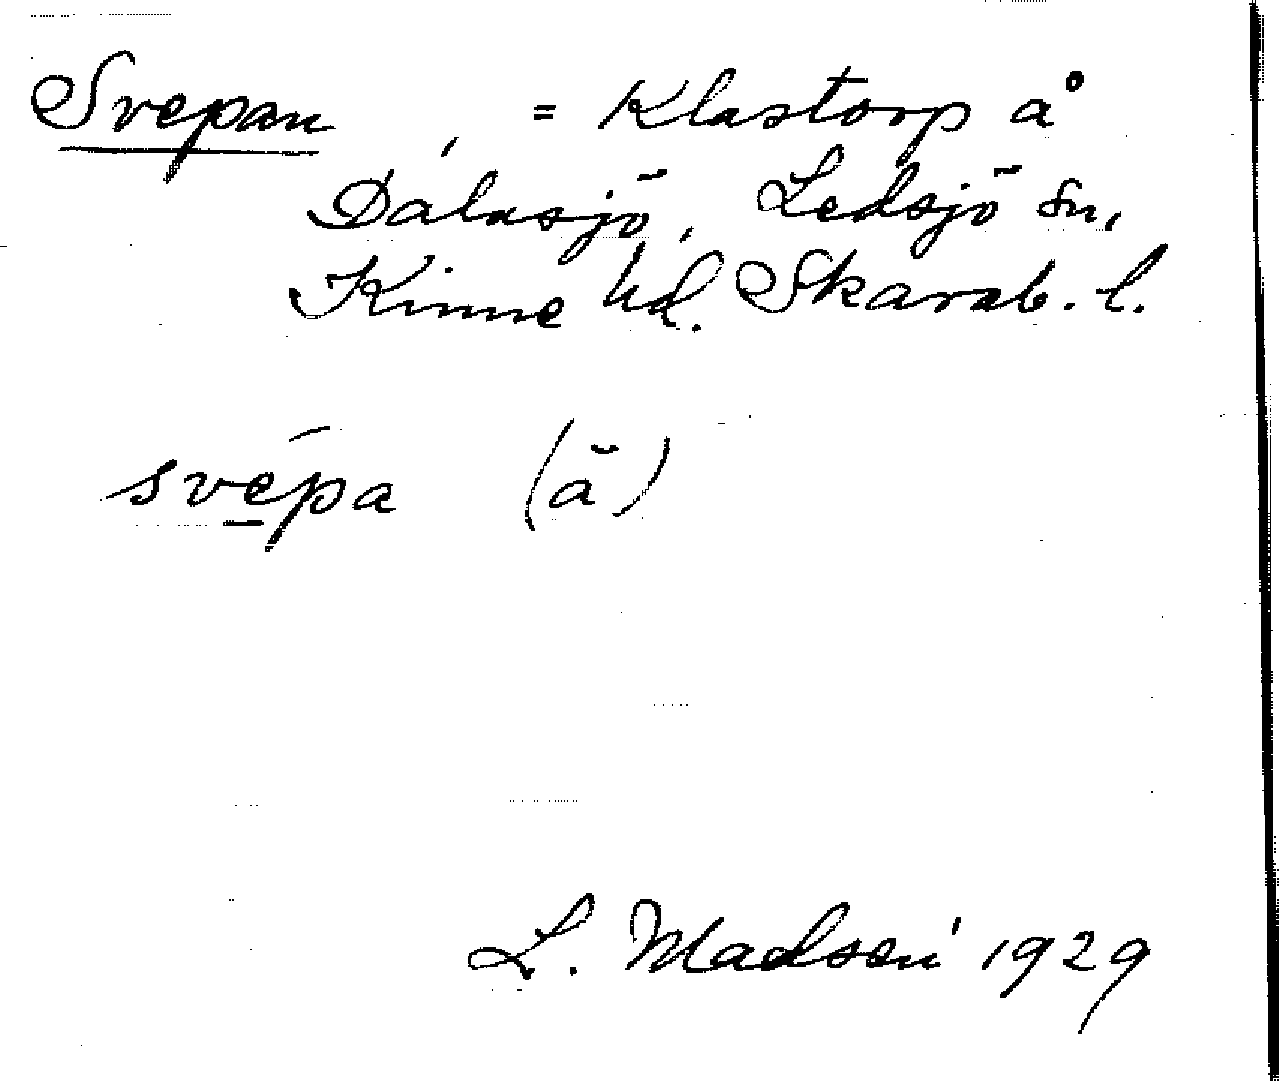 Svepan, = Klastorp å
Dalasjö, Ledsjö sn,
Kinne hd. Skarab. l.
svepa (ā)
L. Madsén 1929